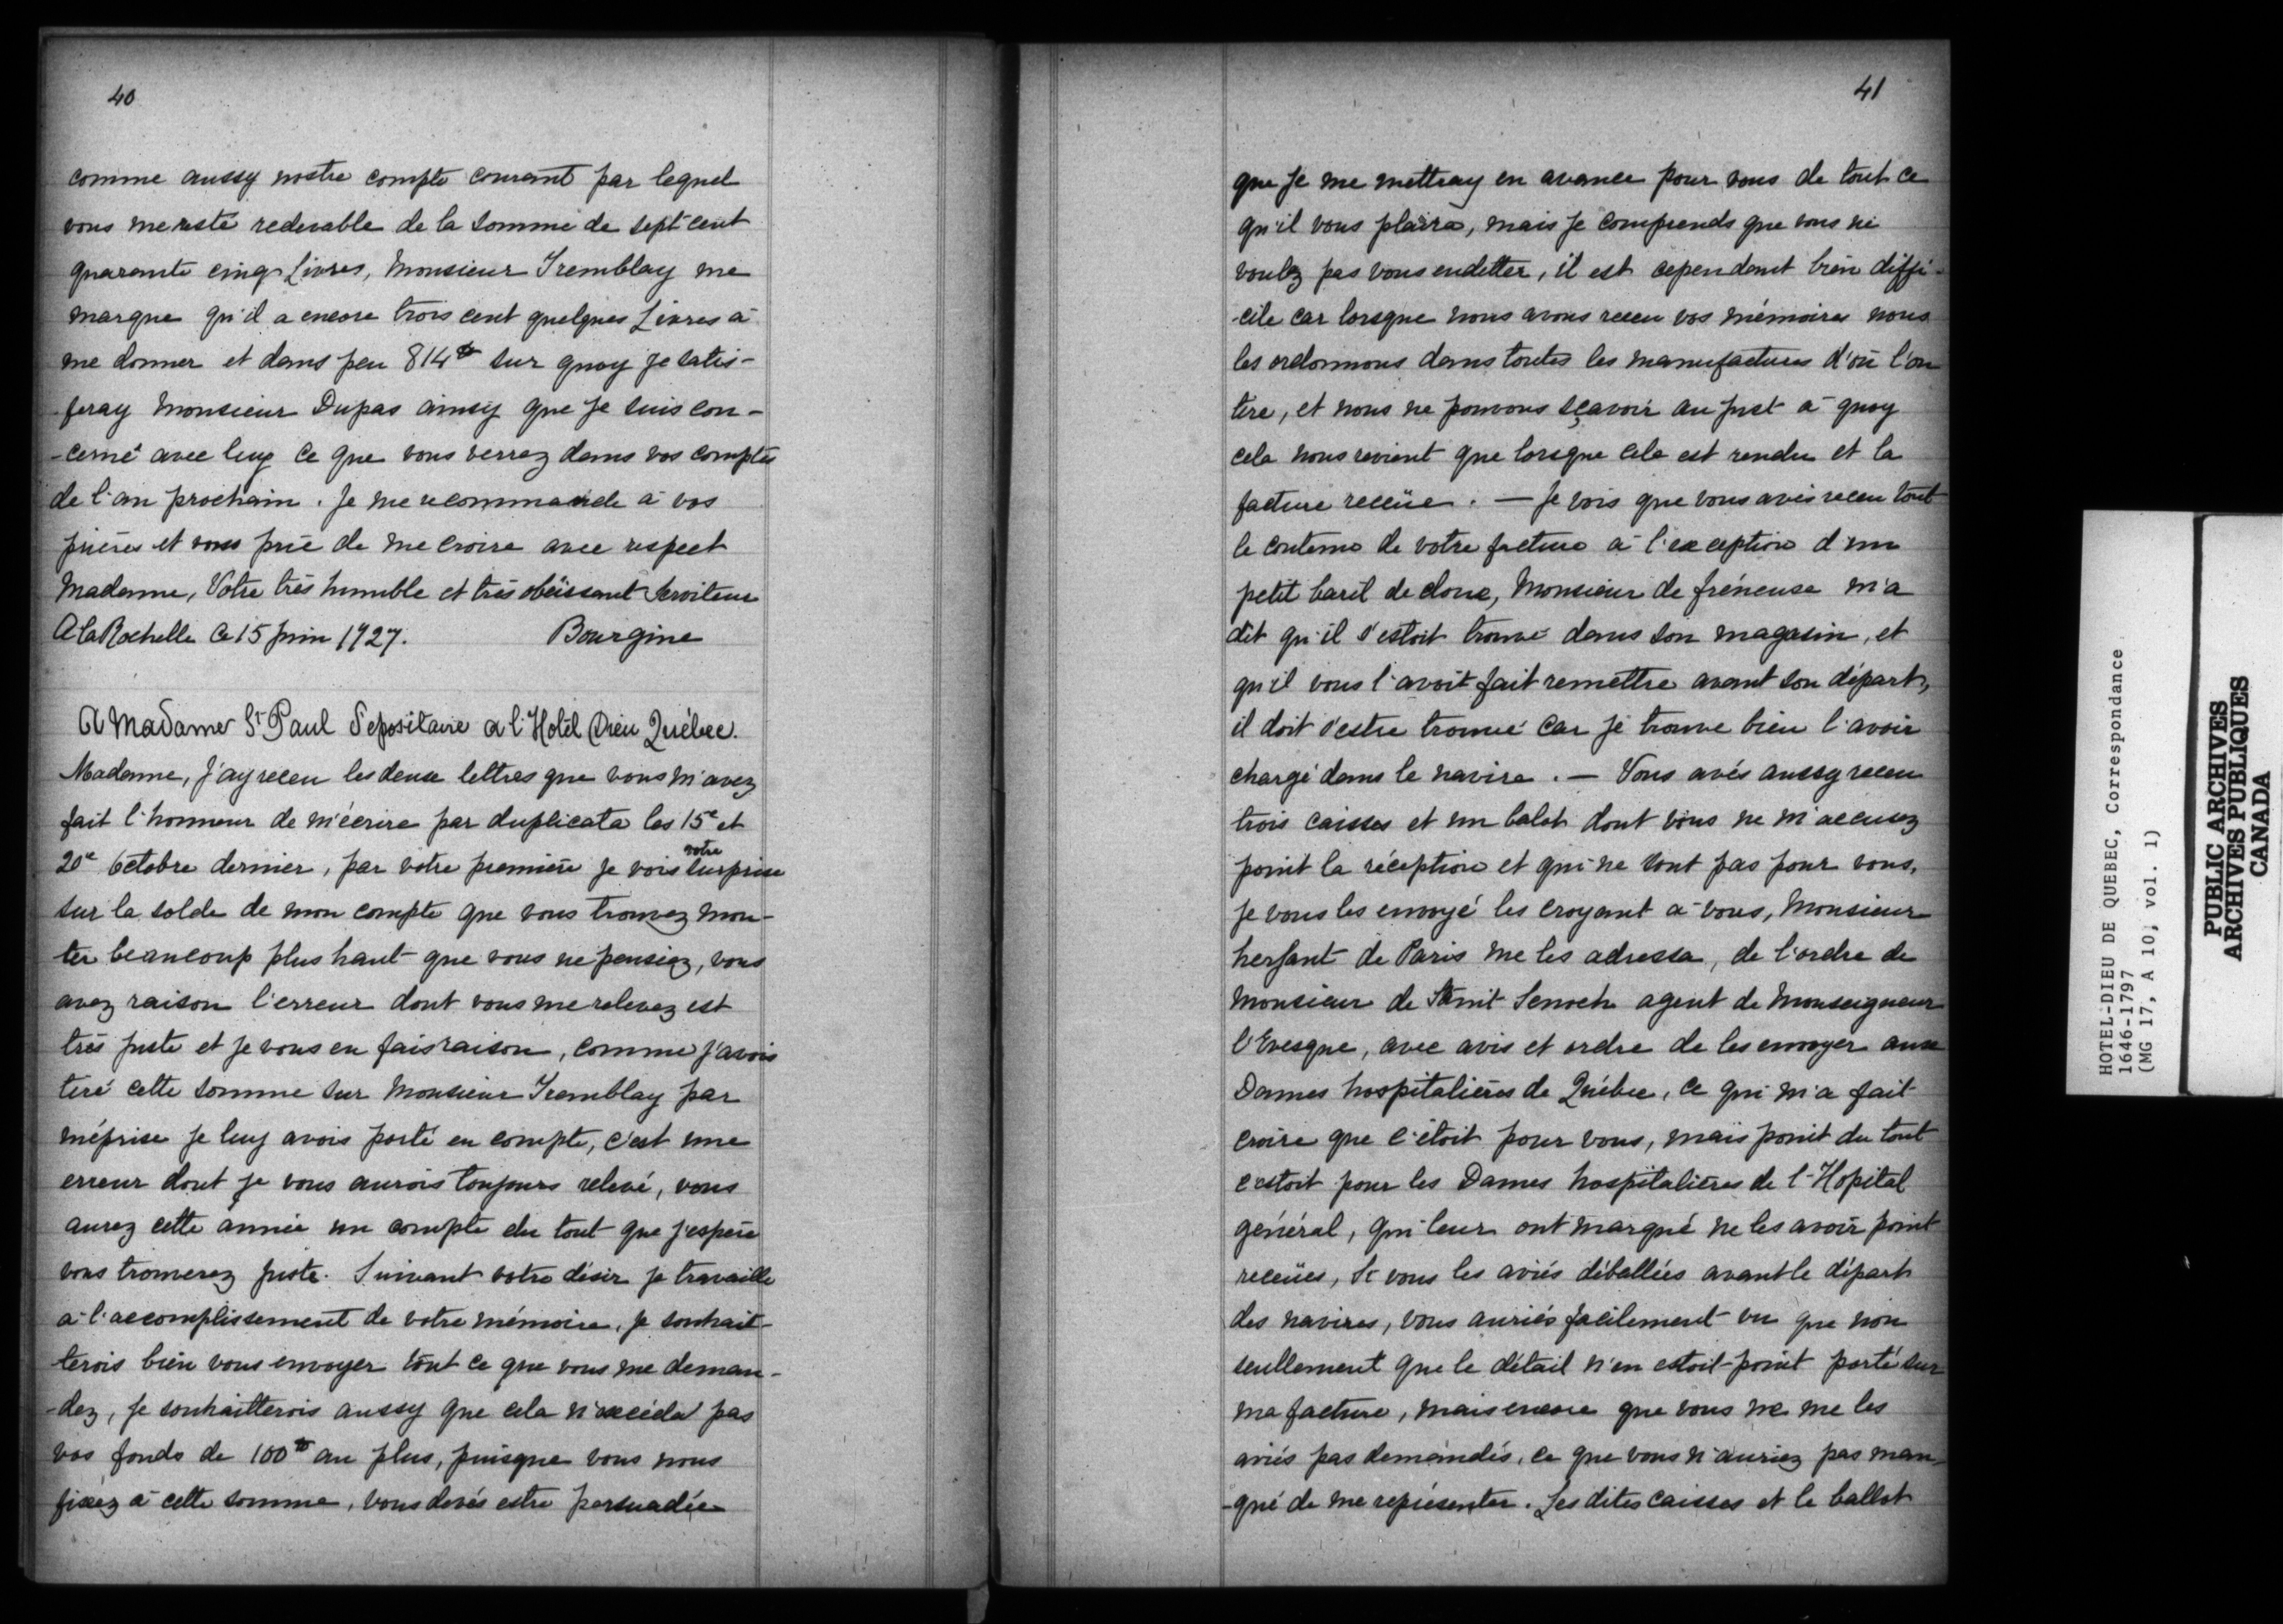 40
comme aussy nostre compte courant par lequel
vous me reste redevable de la somme de sept cent
quarante cinq Livres, Monsieur Tremblay me
marque qu'il a encore trois cent quelques Livres à
me donner et dans peu 814 ₶ sur quoy je satis-
feray Monsieur Dupas ainsy que je suis con-
-cerné avec luy ce que vous verrez dans vos comptes
de l'an prochain. Je me recommande à vos
prières et vous prie de me croire avec respect
Madame, Votre très humble et très obéissant Serviteur
A la Rochelle ce 15 juin 1727. Bourgine
A Madame St Paul Depositaire a l'Hotel Dieu Québec.
Madame, J'ay receu les deux lettres que vous m'avez
fait l'honneur de m'écrire par duplicata les 15e et
20e octobre dernier, par votre première je vois votre surprise
sur la solde de mon compte que vous trouvez mon-
ter beaucoup plus haut que vous ne pensiez, vous
avez raison l'erreur dont vous me relevez est
très juste et je vous en fais raison, comme j'avois
tiré cette somme sur Monsieur Tremblay par
méprise je luy avois porté en compte, c'est une
erreur dont je vous aurois toujours relevé, vous
aurez cette année un compte du tout que j'espère
vous trouverez juste. Suivant votre désir je travaille
à l'accomplissement de votre mémoire, je souhait-
terois bien vous envoyer tout ce que vous me deman-
-dez, je souhaitterois aussy que cela n'excéda pas
vos fonds de 100 ₶ au plus, puisque vous nous
fixez à cette somme, vous devés estre persuadée
41
que je me mettray en avance pour vous de tout ce
qu'il vous plaira, mais je comprends que vous ne
voulez pas vous endetter, il est cependant bien diffi-
-cile car lorsque nous avons receu vos mémoires nous
les ordonnons dans toutes les manufactures d'où l'on
tire, et nous ne pouvons sçavoir au just à quoy
cela nous revient que lorsque cela est rendu et la
facture receüe. — Je vois que vous avés receu tout
le contenu de votre facture à l'exception d'un
petit baril de cloux, Monsieur de fréneuse m'a
dit qu'il s'estoit trouvé dans son magasin, et
qu'il vous l'avoit fait remettre avant son départ,
il doit s'estre trouvé car je trouve bien l'avoir
chargé dans le navire. — Vous avés aussy receu
trois caisses et un balot dont vous ne m'accusez
point la réception et qui ne sont pas pour vous,
je vous les envoyé les croyant à vous, Monsieur
hersant de Paris me les adressa, de l'ordre de
Monsieur de Senoch agent de Monseigneur
l'Evesque, avec avis et ordre de les envoyer aux
Dames hospitalières de Québec, ce qui m'a fait
croire que c'étoit pour vous, mais point du tout
c'estoit pour les Dames hospitalières de l'Hopital
général, qui leur ont marqué ne les avoir point
receües, Si vous les aviés déballées avant le départ
des navires, vous auriés facilement vu que non
seullement que le détail n'en estoit point porté sur
ma facture, mais encore que vous ne me les
aviés pas demandés, ce que vous n'auriez pas man-
-qué de me représenter. Les dites caisses et le ballot
HOTEL-DIEU DE QUEBEC, Correspondance
1646-1797
(MG 17, A 10, vol. 1)
PUBLIC ARCHIVES
ARCHIVES PUBLIQUES
CANADA